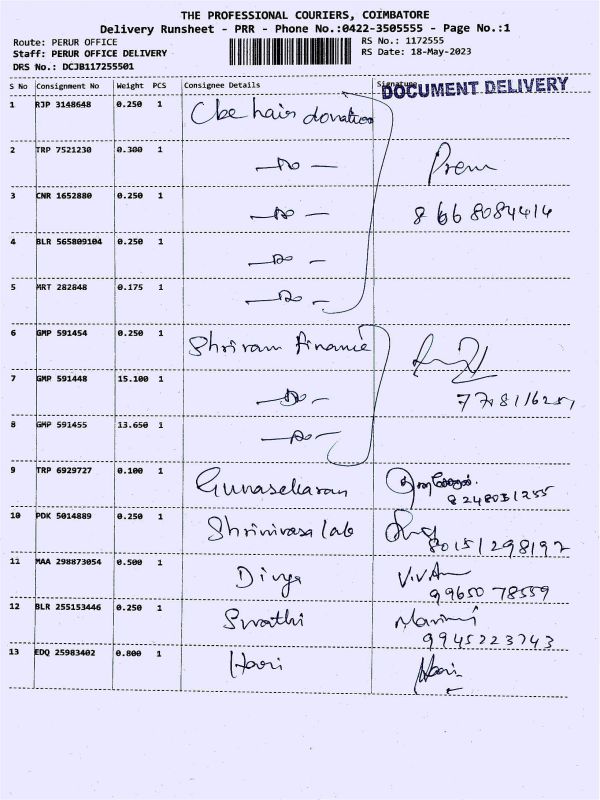 THE PROFESSIONAL COURIERS, COIMBATORE
Delivery Runsheet - PRR - Phone No.:0422-3505555 - Page No.:1
Route: PERUR OFFICE RS No.: 1172555
Staff: PERUR OFFICE DELIVERY RS Date: 18-May-2023
DRS No.: DCJB117255501
S No Consignment No Weight PCS Consignee Details Signature
DOCUMENT DELIVERY
1 RJP 3148648 0.250 1 Cbe hair donation
2 TRP 7521230 0.300 1 — Do — Prem
3 CNR 1652880 0.250 1 — Do — 8668084414
4 BLR 565809104 0.250 1 — Do —
5 MRT 282848 0.175 1 — Do —
6 GMP 591454 0.250 1 Shriram finance
7 GMP 591448 15.100 1 — Do —
8 GMP 591455 13.650 1 — Do —
9 TRP 6929727 0.100 1 Gunasekaran
8248031255
10 PDK 5014889 0.250 1 Shrinivasa lab
80151298192
11 MAA 298873054 0.500 1 Divya V.V.Am
99650 78559
12 BLR 255153446 0.250 1 Swathi
9945223743
13 EDQ 25983402 0.800 1 Hari Hari